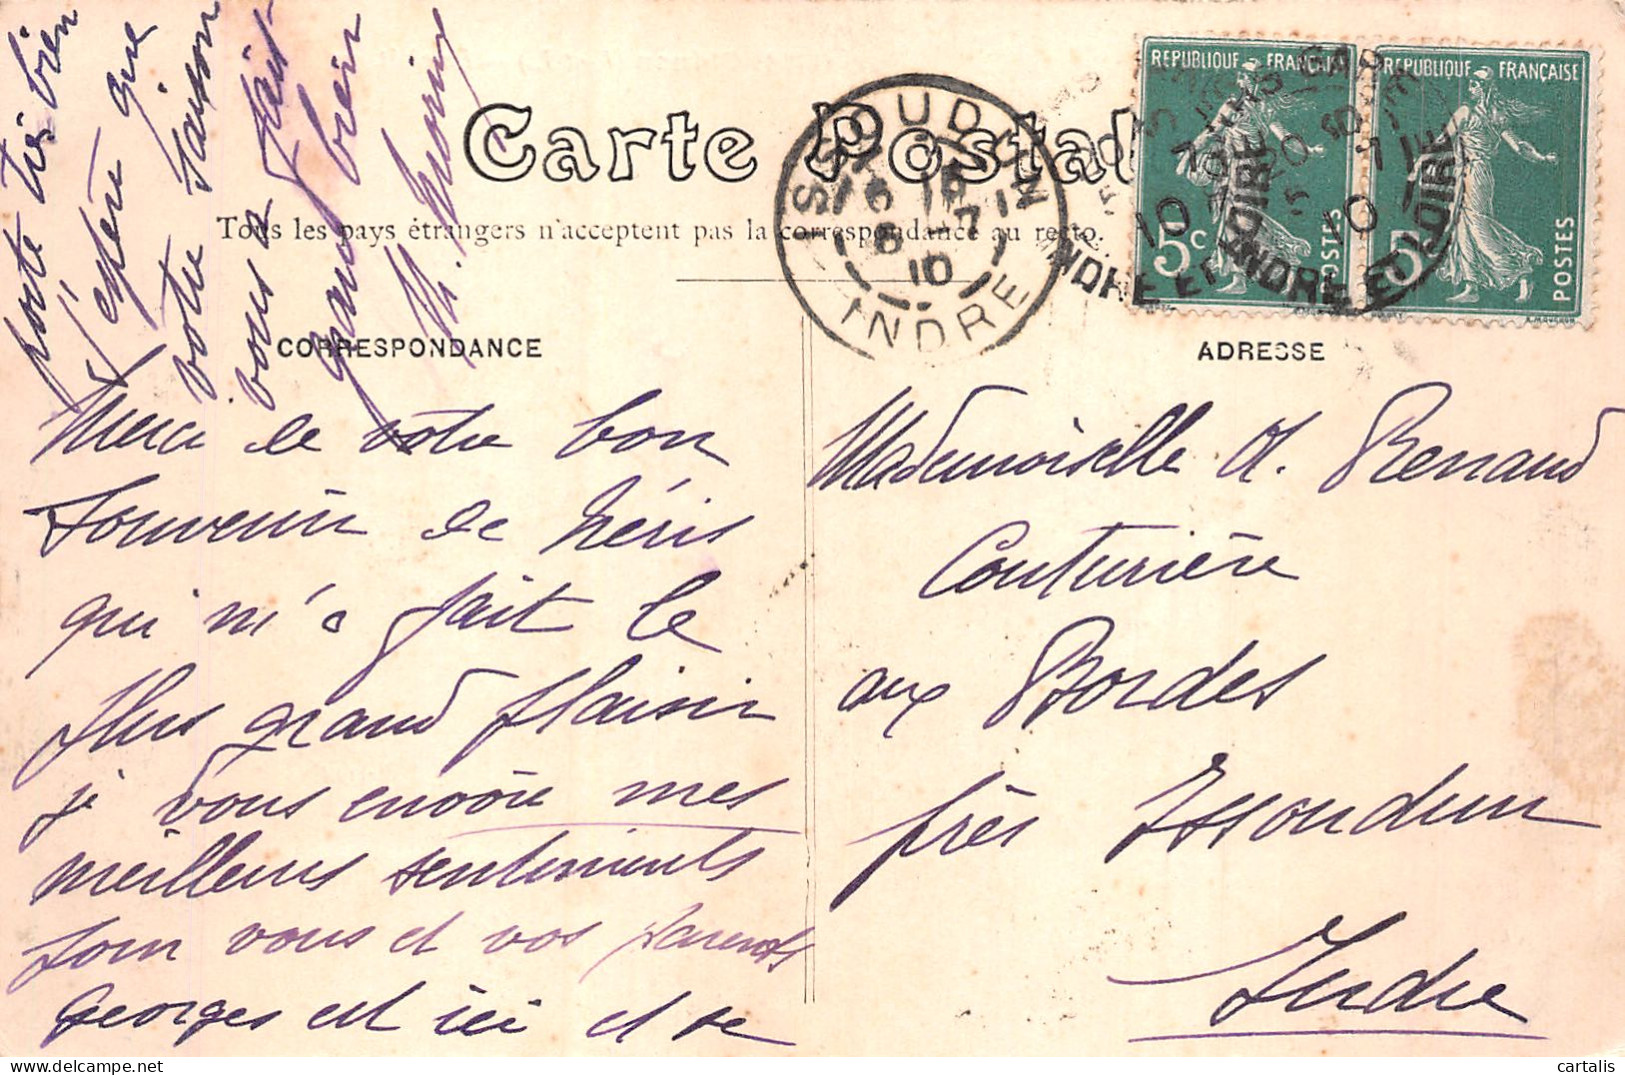 Carte Postale
Tous les pays étrangers n'acceptent pas la correspondance au recto.
CORRESPONDANCE
Merci de votre bon
souvenir de Néris
qui m'a fait le
plus grand plaisir
je vous envoie mes
meilleurs sentiments
pour vous et vos parents
Georges est ici et se
porte très bien
J'espère que
votre saison
vous a fait
grand bien
M. Morin
ADRESSE
Mademoiselle A. Renaud
Couturière
aux Bordes
près Issoudun
Indre
REPUBLIQUE FRANÇAISE
5c
POSTES
REPUBLIQUE FRANÇAISE
5
POSTES
ISSOUDUN
8 7
10
INDRE
INDRE ET LOIRE
10
INDRE ET LOIRE
10
cartalis